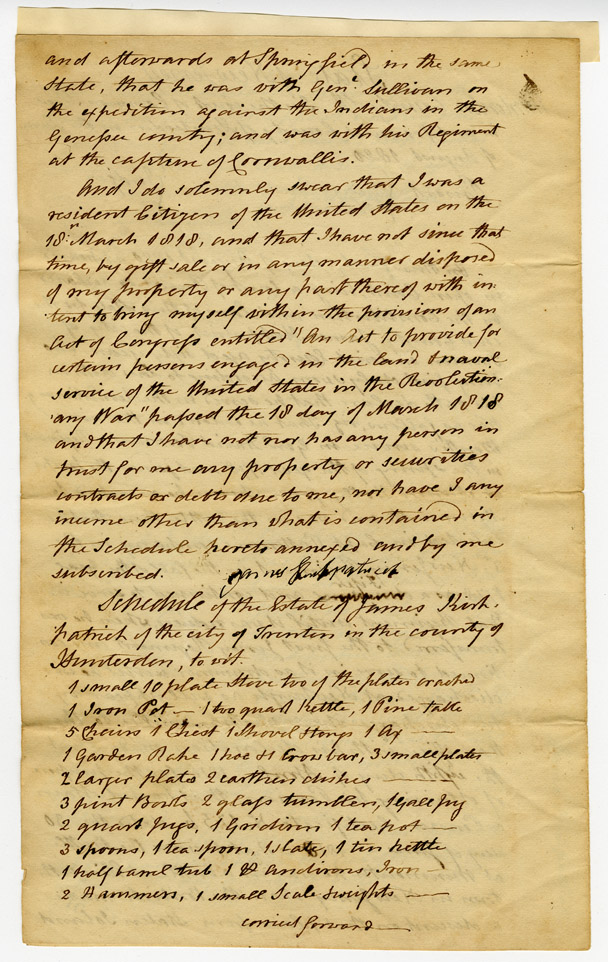 and afterwards at Springfield in the same
State, that he was with Genl. Sullivan on
the expedition against the Indians in the
Genessee county; and was with his Regiment
at the capture of Cornwallis.
And I do solemnly swear that I was a
resident Citizen of the United States on the
18th March 1818, and that I have not since that
time, by gift sale or in any manner disposed
of my property or any part thereof with in
tent to bring myself within the provisions of an
Act of Congress entitled "An Act to provide for
certain persons engaged in the land & naval
service of the United States in the Revolution-
ary War" passed the 18 day of March 1818
and that I have not nor has any person in
trust for me any property or securities
contracts or debts due to me, nor have I any
income other than what is contained in
the Schedule hereto annexed and by me
subscribed. James Kirkpatrick
Schedule of the Estate of James Kirk-
patrick of the city of Trenton in the county of
Hunterdon, to wit.
1 small 10 plate Stove two of the plates cracked
1 Iron Pot — 1 two quart kettle, 1 Pine table
5 Chairs 1 Chest 1 Shovel & tongs 1 Ax —
1 Garden Rake 1 hoe & 1 Crowbar, 3 small plates
2 larger plates 2 earthen dishes —
3 pint Bowls 2 glass tumblers, 1 Gall Jug
2 quart Jugs, 1 Gridiron 1 tea pot —
3 spoons, 1 tea spoon, 1 slate, 1 tin kettle
1 half barrel tub 1 andirons, Iron —
2 Hammers, 1 small Scale & weights —
carried forward —